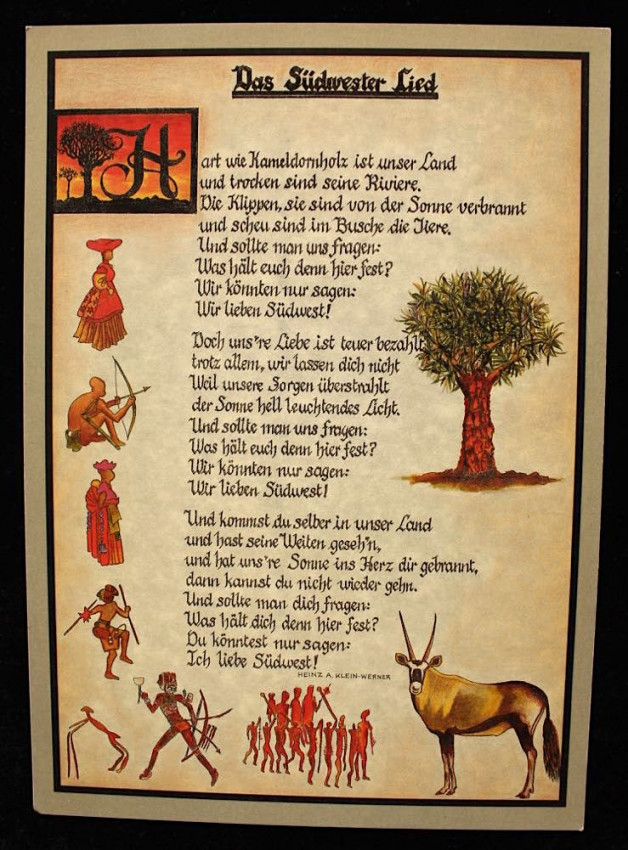 Das Südwester Lied
Hart wie Kameldornholz ist unser Land
und trocken sind seine Riviere.
Die Klippen, sie sind von der Sonne verbrannt
und scheu sind im Busche die Tiere.
Und sollte man uns fragen:
Was hält euch denn hier fest?
Wir könnten nur sagen:
Wir lieben Südwest!
Doch uns're Liebe ist teuer bezahlt
trotz allem, wir lassen dich nicht
Weil unsere Sorgen überstrahlt
der Sonne hell leuchtendes Licht.
Und sollte man uns fragen:
Was hält euch denn hier fest?
Wir könnten nur sagen:
Wir lieben Südwest!
Und kommst du selber in unser Land
und hast seine Weiten geseh'n,
und hat uns're Sonne ins Herz dir gebrannt,
dann kannst du nicht wieder gehn.
Und sollte man dich fragen:
Was hält dich denn hier fest?
Du könntest nur sagen:
Ich liebe Südwest!
HEINZ A. KLEIN-WERNER